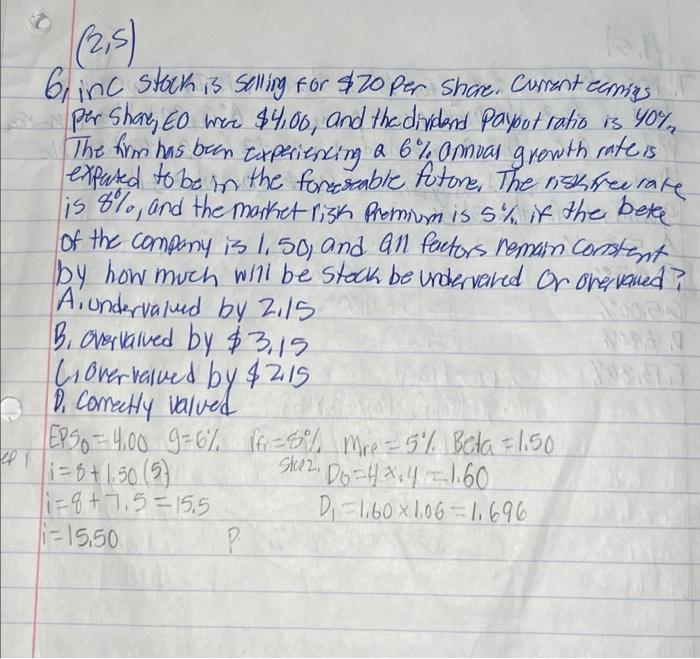 (2,5)
6, inc stock is selling for $20 per share. Current earnings
per share, EO were $4,00, and the dividend payout ratio is 40%.
The firm has been experiencing a 6% annual growth rate is
expected to be in the foreseeable future. The risk free rate
is 8%, and the market risk premium is 5% if the beta
of the company is 1.50, and all factors remain constent
by how much will be stock be undervalued or overvalued?
A. undervalued by 2.15
B. overvalued by $3.15
C. overvalued by $2.15
D. correctly valued
EPS0 = 4.00 g=6% rf=8% Mrp = 5% Beta = 1.50
i = 8 + 1.50 (5) Step 2. D0 = 4 x .4 = 1.60
i = 8 + 7.5 = 15.5 D1 = 1.60 x 1.06 = 1.696
i = 15.50 P